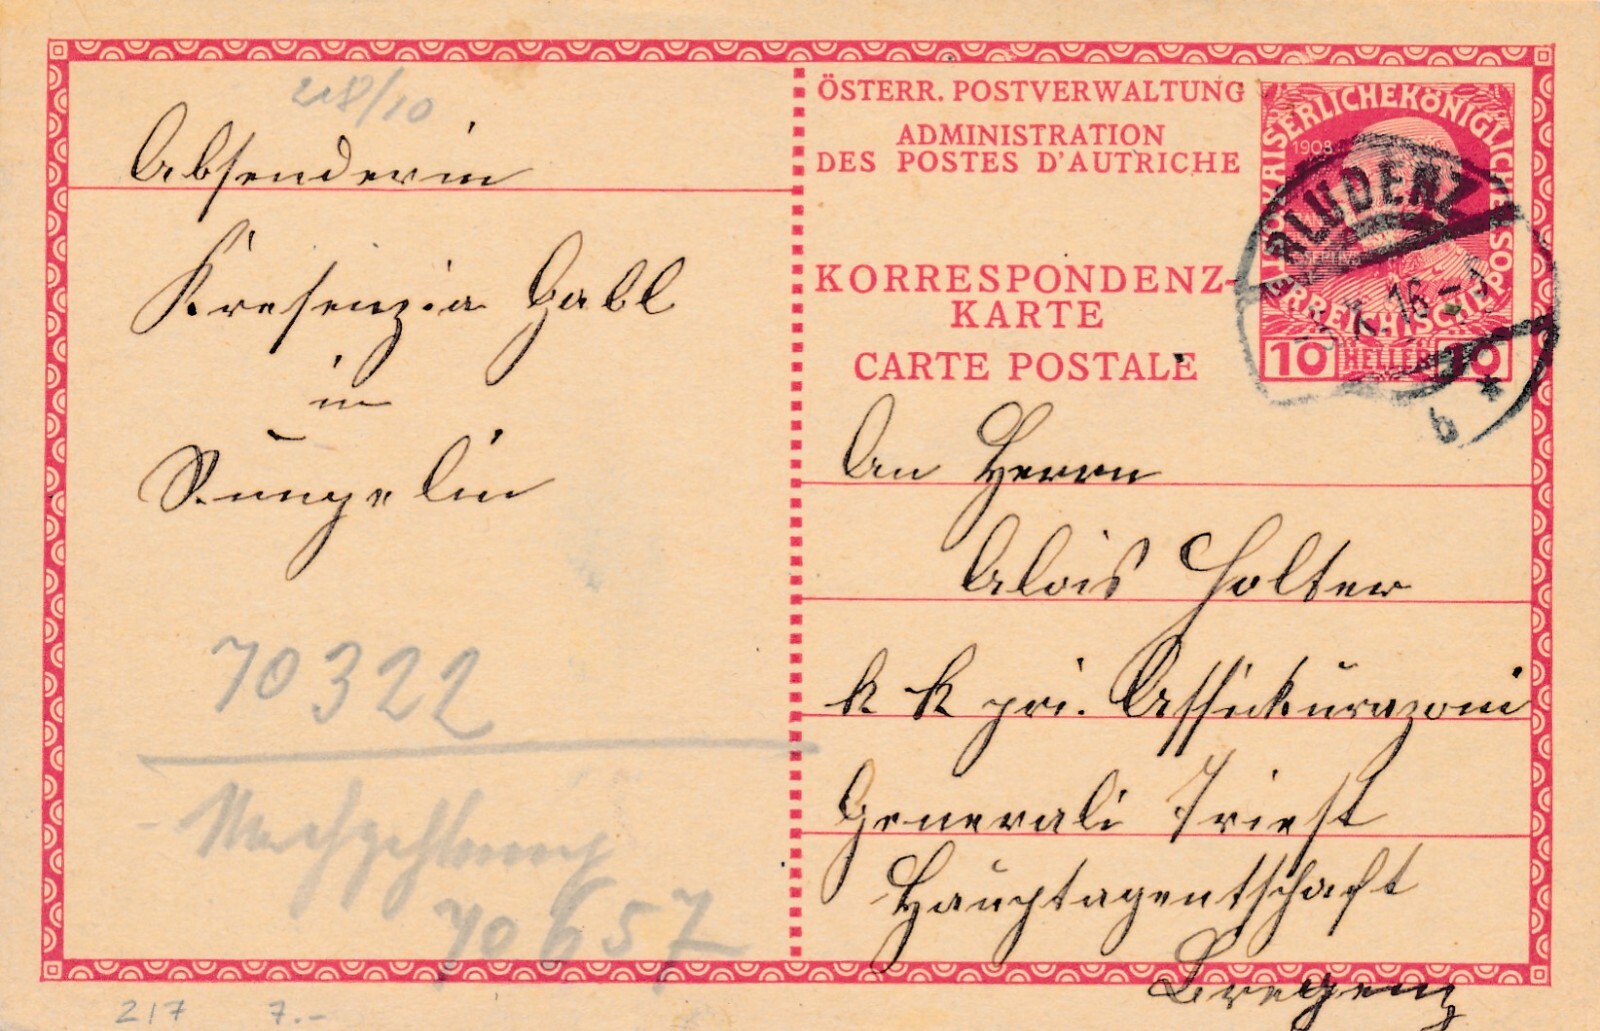 218/10
Absenderin
Kresenzia Gabl
in
Rungelin
70322
70657
217 7.-
ÖSTERR. POSTVERWALTUNG
ADMINISTRATION
DES POSTES D'AUTRICHE
KAISERLICHEKÖNIGLICHE
ÖSTERREICHISCHE POST
1908
10 HELLER 10
BLUDENZ
16
b *
KORRESPONDENZ-
KARTE
CARTE POSTALE
An Herrn
Alois Holter
k k pri. Assickurazoni
Generali Triest
Hauptagentschaft
Bregenz